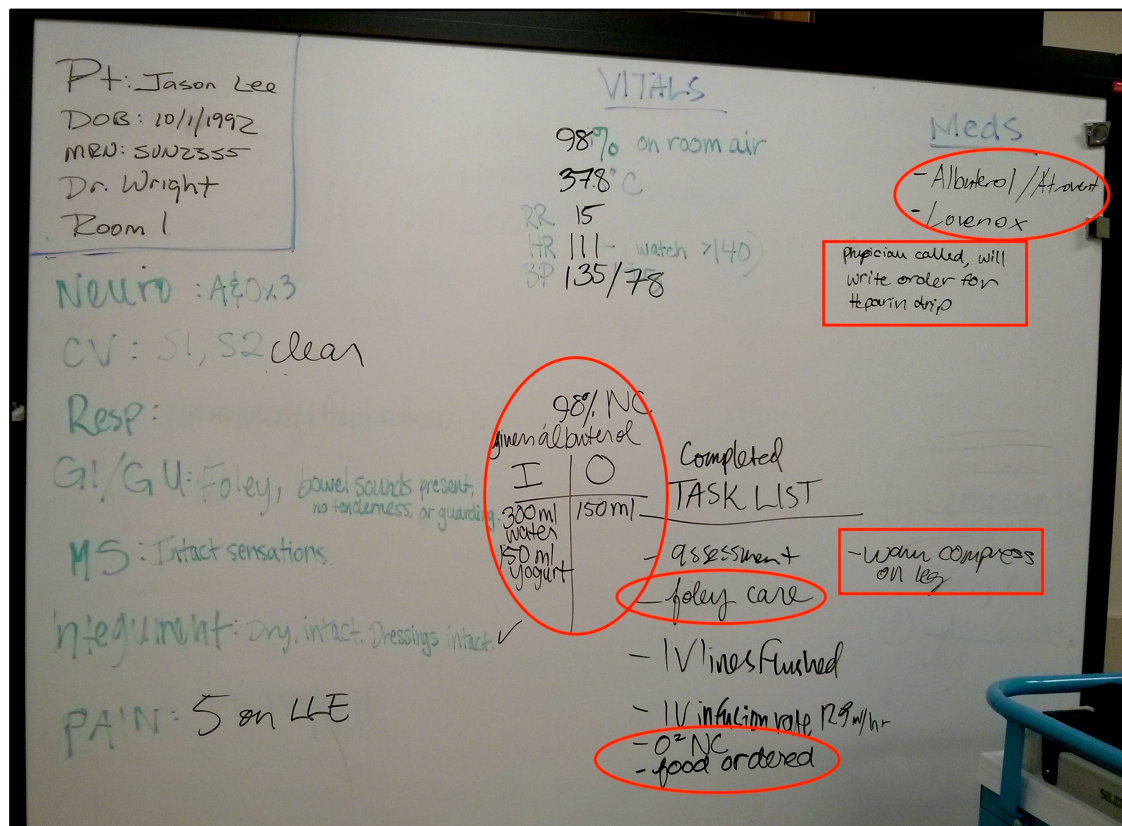 Pt: Jason Lee
DOB: 10/1/1992
MRN: SUN2355
Dr. Wright
Room 1
VITALS
98% on room air
37.8°C
RR 15
HR 111 - (watch >140)
BP 135/78
Meds
- Albuterol/Atrovent
- Lovenox
physician called, will
write order for
Heparin drip
Neuro: A&Ox3
CV: S1, S2 clear
Resp:
GI/GU: Foley, bowel sounds present,
no tenderness, or guarding.
MS: Intact sensations.
ntegument: Dry, intact. Dressings intact. ✓
PAIN: 5 on LLE
98% NC
given albuterol
I O
300ml 150ml
water
150ml
yogurt
Completed
TASK LIST
- assessment
- foley care
- IV lines flushed
- IV infusion rate 125 ml/hr
- O² NC
- food ordered
- warm compress
on leg